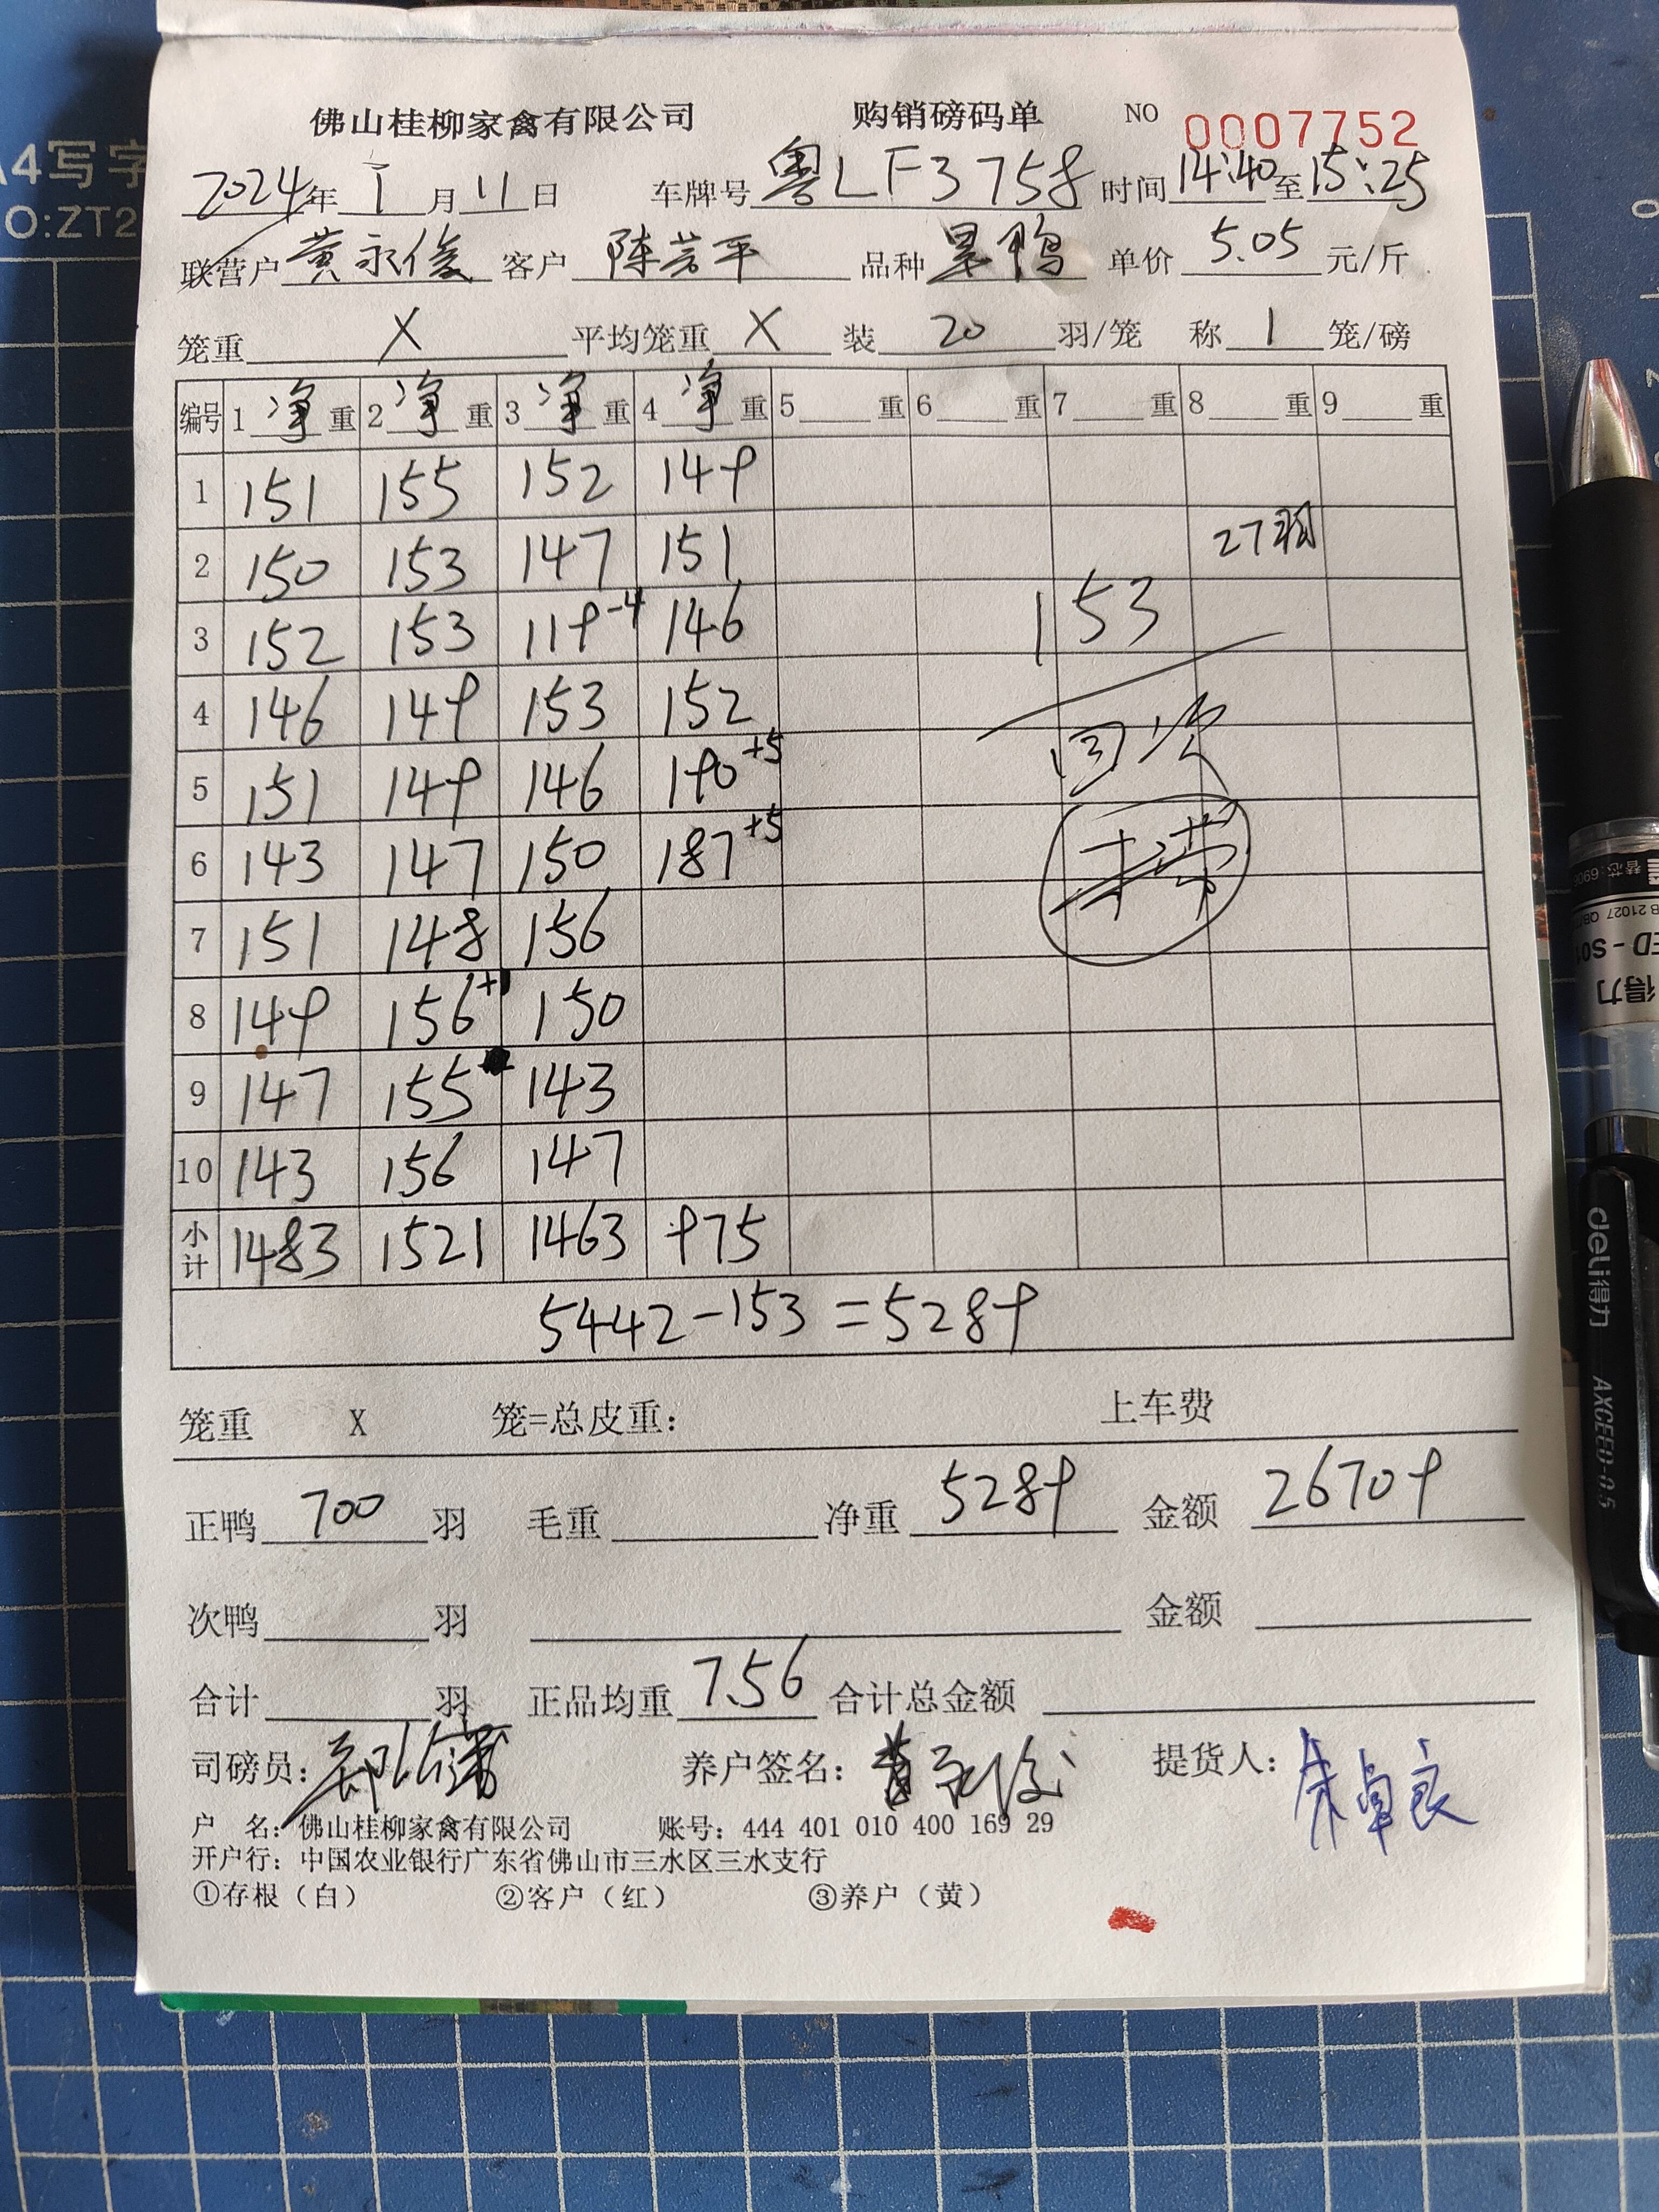 佛山桂柳家禽有限公司 购销磅码单 NO 0007752
2024年 1 月 11 日 车牌号 粤LF3758 时间 14:40 至 15:25
联营户 黄永俊 客户 陈芸平 品种 单价 5.05 元/斤
笼重 X 平均笼重 X 装 20 羽/笼 称 1 笼/磅
编号 1 净 重 2 净 重 3 净 重 4 净 重 5 重 6 重 7 重 8 重 9 重
1 151 155 152 149
2 150 153 147 151 27羽
3 152 153 119-4 146 153
4 146 149 153 152 回次
5 151 149 146 190+5
6 143 147 150 187+5
7 151 148 156
8 149 156+1 150
9 147 155 143
10 143 156 147
小计 1483 1521 1463 975
5442-153=5289
笼重 X 笼=总皮重: 上车费
正鸭 700 羽 毛重 净重 5289 金额 26709
次鸭 羽 金额
合计 羽 正品均重 7.56 合计总金额
司磅员: 养户签名: 黄永俊 提货人: 朱卓良
户 名: 佛山桂柳家禽有限公司 账号: 444 401 010 400 169 29
开户行: 中国农业银行广东省佛山市三水区三水支行
①存根（白） ②客户（红） ③养户（黄）
A4写字
O:ZT2
deli得力 AXCEED-0.5
得力